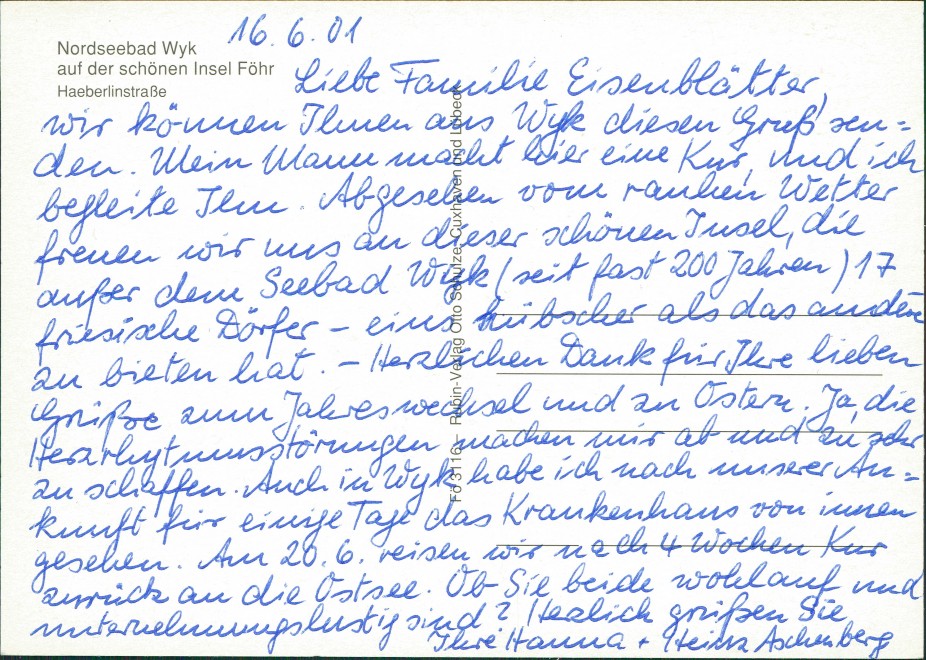 16.6.01
Nordseebad Wyk
auf der schönen Insel Föhr
Haeberlinstraße
Liebe Familie Eisenblätter,
wir können Ihnen aus Wyk diesen Gruß sen=
den. Mein Mann macht hier eine Kur, und ich
begleite Ihn. Abgesehen vom rauhen Wetter
freuen wir uns an dieser schönen Insel, die
außer dem Seebad Wyk (seit fast 200 Jahren) 17
friesische Dörfer - eins hübscher als das andere
zu bieten hat. - Herzlichen Dank für Ihre lieben
Grüße zum Jahreswechsel und zu Ostern. Ja, die
Herzrhytmusstörungen machen mir ab und zu sehr
zu schaffen. Auch in Wyk habe ich nach unserer An=
kunft für einige Tage das Krankenhaus von innen
gesehen. Am 20.6. reisen wir nach 4 Wochen Kur
zurück an die Ostsee. Ob Sie beide wohlauf und
unternehmungslustig sind? Herzlich grüßen Sie
Ihre Hanna + Heinz Aschenberg
Fö 3116 - Rubin-Verlag Otto Schulze, Cuxhaven und Lübeck